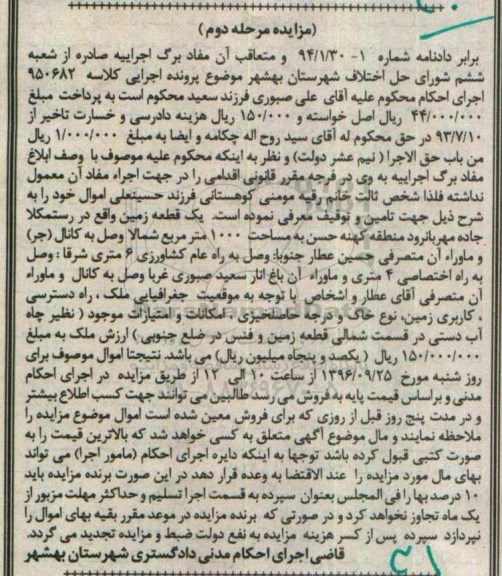 (مزایده مرحله دوم)
برابر دادنامه شماره 1- 94/1/30 و متعاقب آن مفاد برگ اجراییه صادره از شعبه
ششم شورای حل اختلاف شهرستان بهشهر موضوع پرونده اجرایی کلاسه 950682
اجرای احکام محکوم علیه آقای علی صبوری فرزند سعید محکوم است به پرداخت مبلغ
44/000/000 ریال اصل خواسته و 150/000 ریال هزینه دادرسی و خسارت تاخیر از
93/7/10 در حق محکوم له آقای سید روح اله چکامه و ایضا به مبلغ 1/000/000 ریال
من باب حق الاجرا ( نیم عشر دولت) و نظر به اینکه محکوم علیه موصوف با وصف ابلاغ
مفاد برگ اجراییه به وی در فرجه مقرر قانونی اقدامی را در جهت اجراء مفاد آن معمول
نداشته فلذا شخص ثالث خانم رقیه مومنی کوهستانی فرزند حسینعلی اموال خود را به
شرح ذیل جهت تامین و توقیف معرفی نموده است. یک قطعه زمین واقع در رستمکلا
جاده مهربانرود منطقه کهنه حسن به مساحت 1000 متر مربع شمالا وصل به کانال (جر)
و ماوراء آن متصرفی حسین عطار جنوبا: وصل به راه عام کشاورزی 6 متری شرقا : وصل
به راه اختصاصی 4 متری و ماوراء آن باغ انار سعید صبوری غربا وصل به کانال و ماوراء
آن متصرفی آقای عطار و اشخاص با توجه به موقعیت جغرافیایی ملک ، راه دسترسی
، کاربری زمین، نوع خاک و درجه حاصلخیزی ، امکانات و امتیازات موجود ( نظیر چاه
آب دستی در قسمت شمالی قطعه زمین و فنس در ضلع جنوبی ) ارزش ملک به مبلغ
150/000/000 ریال ( یکصد و پنجاه میلیون ریال) می باشد. نتیجتا اموال موصوف برای
روز شنبه مورخ 1396/09/25 از ساعت 10 الی 12 از طریق مزایده در اجرای احکام
مدنی و براساس قیمت پایه به فروش می رسد طالبین می توانند جهت کسب اطلاع بیشتر
و در مدت پنج روز قبل از روزی که برای فروش معین شده است اموال موضوع مزایده را
ملاحظه نمایند و مال موضوع آگهی متعلق به کسی خواهد شد که بالاترین قیمت را به
صورت کتبی قبول کرده باشد توجها به اینکه دایره اجرای احکام (مامور اجرا) می تواند
بهای مال مورد مزایده را عند الاقتضا به وعده قرار دهد در این صورت برنده مزایده باید
10 درصد بها را فی المجلس بعنوان سپرده به قسمت اجرا تسلیم و حداکثر مهلت مزبور از
یک ماه تجاوز نخواهد کرد و در صورتی که برنده مزایده در موعد مقرر بقیه بهای اموال را
نپردازد سپرده پس از کسر هزینه مزایده به نفع دولت ضبط و مزایده تجدید می گردد.
قاضی اجرای احکام مدنی دادگستری شهرستان بهشهر